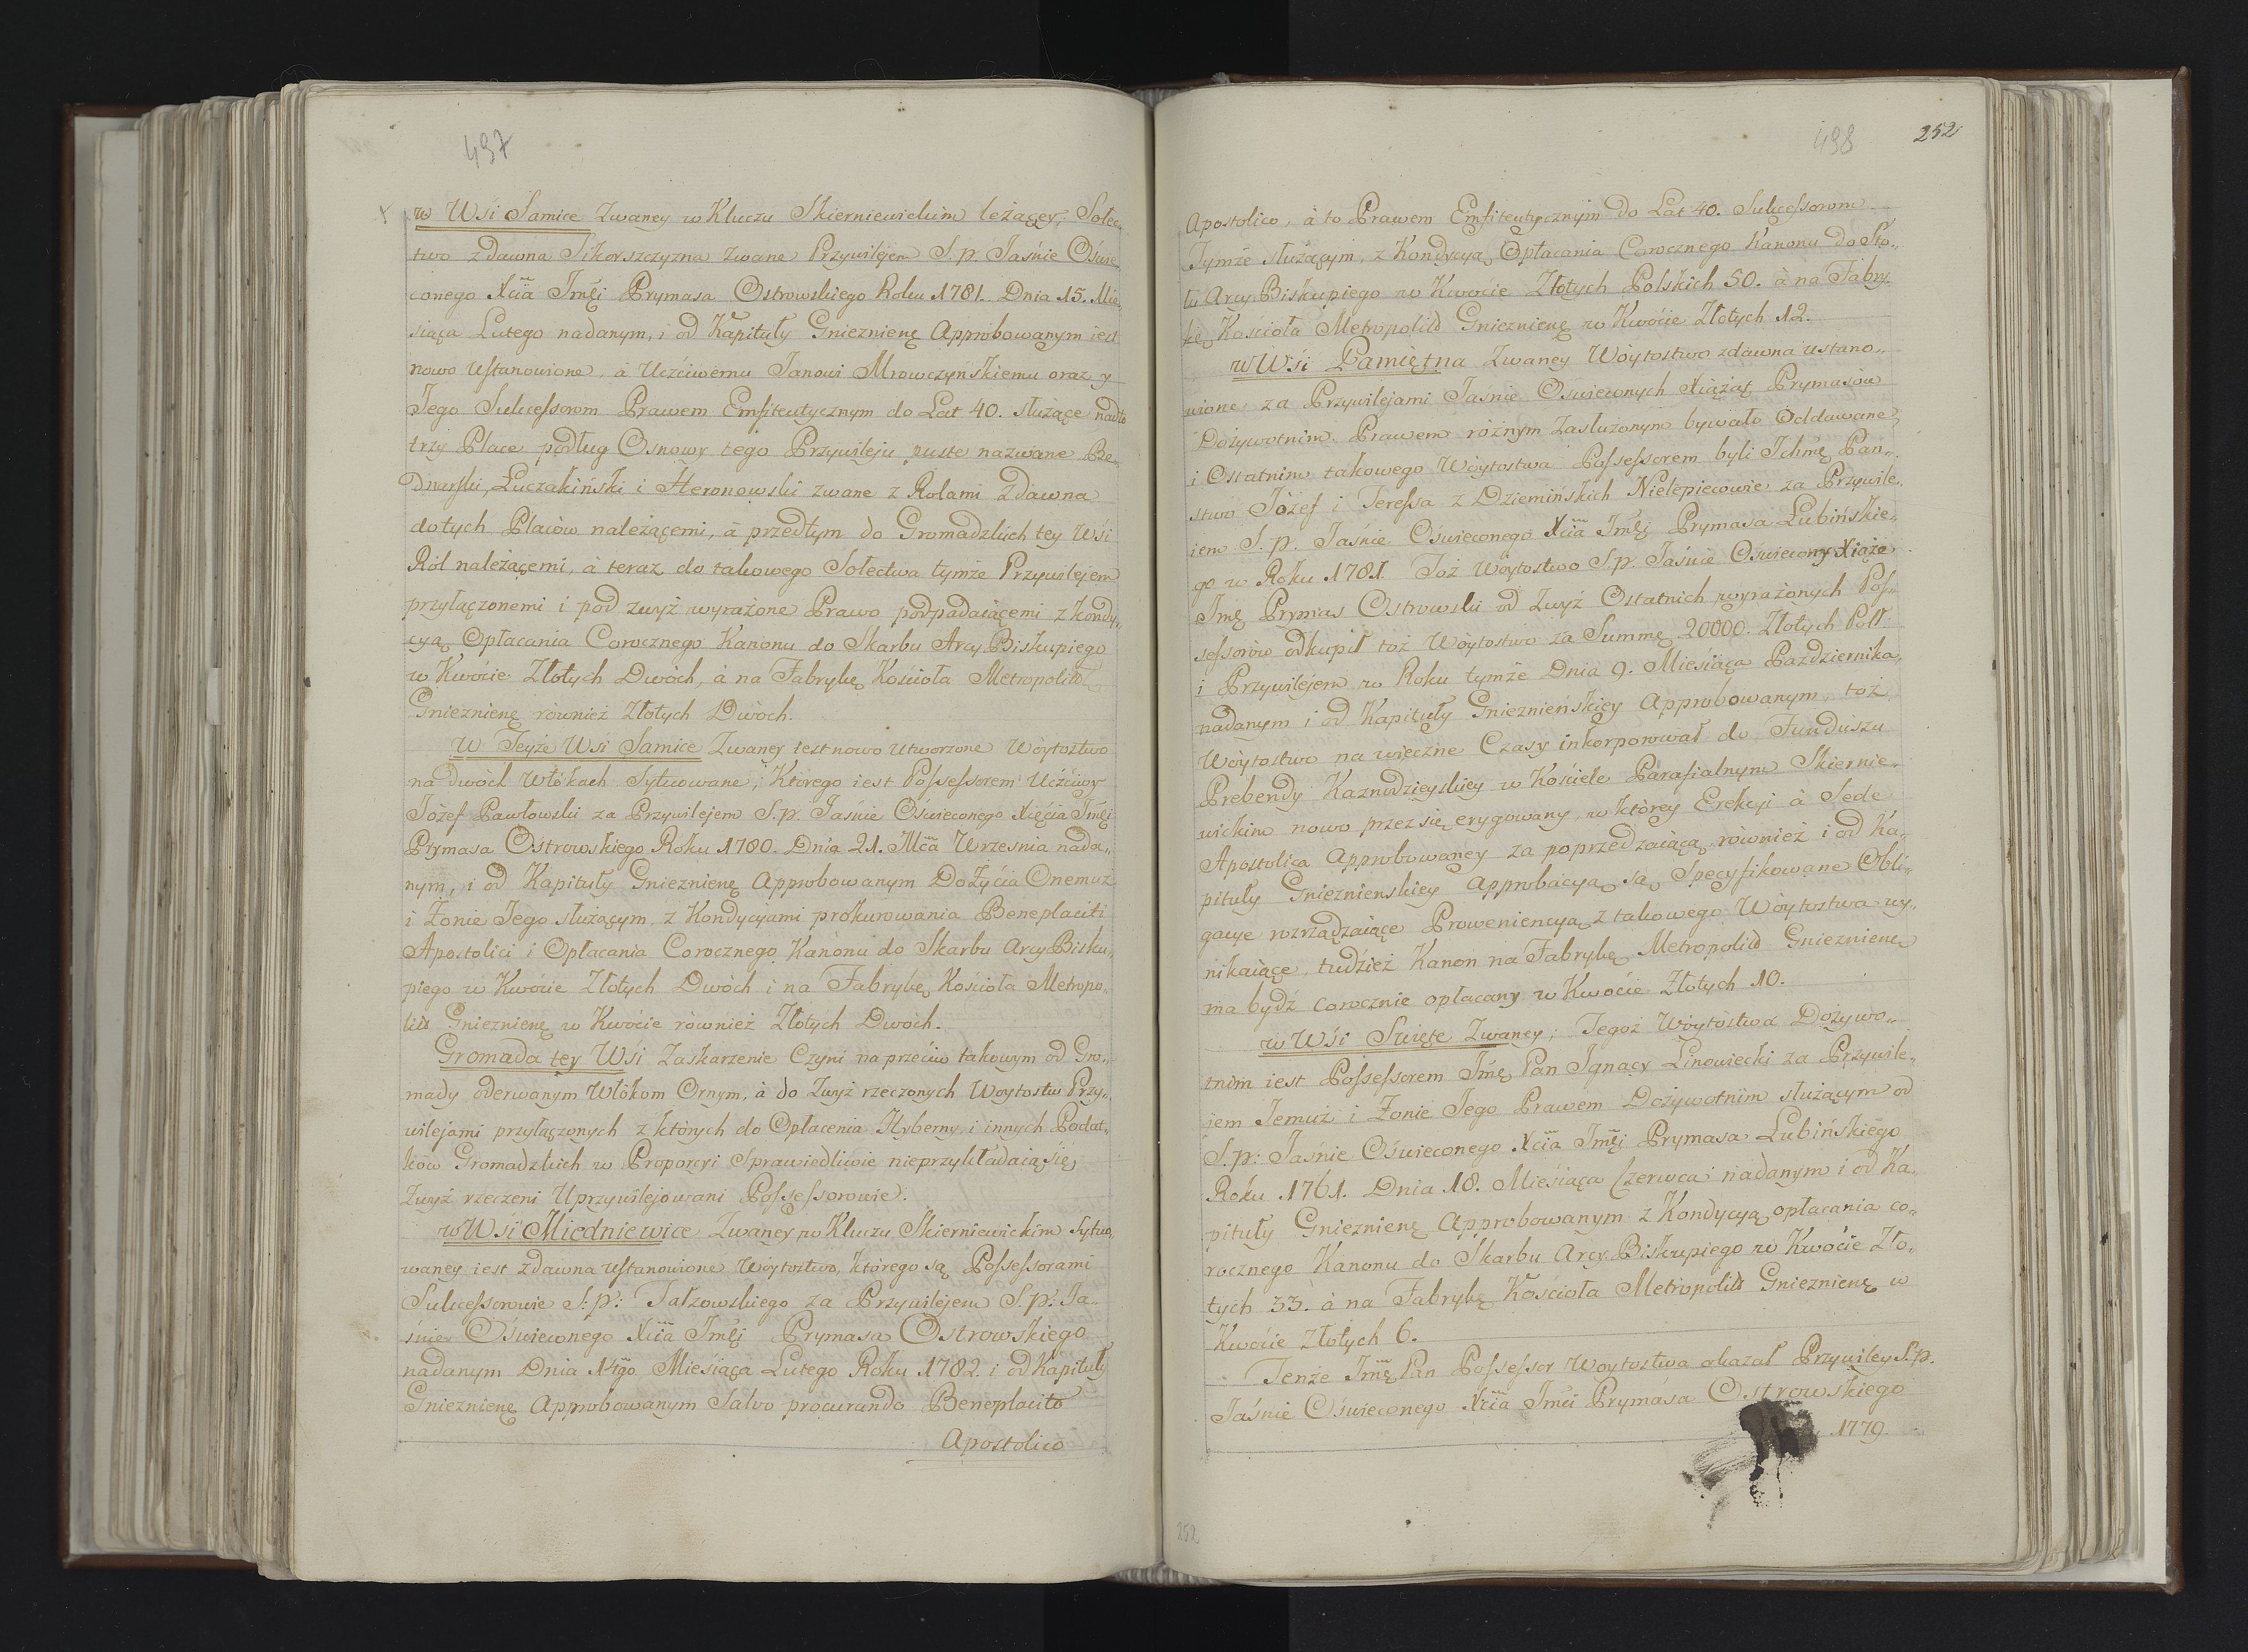 497
w Wsi Samice Zwaney w Kluczu Skierniewickim leżącey, Sołec„
two zdawna Sikorszczyzna zwane Przywilejem S. p. Jaśnie Oświe„
conego Xcia Jmći Prymasa Ostrowskiego Roku 1781. Dnia 15. Mie„
siąca Lutego nadanym, i od Kapituły Gnieznienę Approbowanym iest
nowo Ustanowione, à Uczciwemu Janowi Mrowczyńskiemu oraz y
Jego Sukcessorom Prawem Emfiteutycznym do Lat 40. służące nadto
trzy Place podług Osnowy tego Przywileju puste nazwane Be„
dnarski, Łuczakiński i Heronowski zwane z Rolami zdawna
do tych Placòw należącemi, à przedtym do Gromadzkich tey Wsi
Ról należącemi, à teraz do takowego Sołectwa tymże Przywilejem
przyłączonemi i pod zwyż wyrażone Prawo podpadaiącemi z Kondy„
cyą Opłacania Corocznego Kanonu do Skarbu Arcy Biskupiego
w Kwocie Złotych Dwoch, à na Fabrykę Kościoła Metropolit
Gnieznienę również Złotych Dwòch.
W Teyże Wsi Samice Zwaney iest nowo Utworzone Wòytostwo
na dwòch Włòkach Sytuowane, Ktorego iest Possessorem Uczciwy
Jòzef Pawłowski za Przywilejem S. p. Jaśnie Oświeconego Xięcia Jmći
Prymasa Ostrowskiego Roku 1780. Dnia 21. Mca Wrzesnia nada„
nym, i od Kapituły Gnieznienę Approbowanym Do Życia Onemuż
i Żonie Jego służącym, z Kondycyami prokurowania Beneplaciti
Apostolici i Opłacania Corocznego Kanonu do Skarbu Arcy Bisku„
piego w Kwocie Złotych Dwòch i na Fabrykę Kościoła Metropo„
lit Gnieznienę w Kwocie również Złotych Dwòch.
Gromada tey Wsi Zaskarzenie Czyni na przeciw takowym od Gro„
mady oderwanym Włòkom Ornym, à do Zwyż rzeczonych Woytostw Przy„
wilejami przyłączonych z ktòrych do Opłacenia Hyberny i innych Podat„
kòw Gromadzkich w Proporcyi Sprawiedliwie nieprzykładaią się
Zwyż rzeczeni Uprzywilejowani Possessorowie.
w Wsi Miedniewice Zwaney w Kluczu Skierniewickim Sytuo„
waney iest zdawna Ustanowione Wòytostwo, ktòrego są Possessorami
Sukcessorowie S. p: Tałzowskiego za Przywilejem S. p: Ja„
śnie Oświeconego Xcia Jmći Prymasa Ostrowskiego
nadanym Dnia 14go Miesiąca Lutego Roku 1782. i od Kapituły
Gnieznienę Approbowanym Salvo procurando Beneplacito
Apostolico
498
252
Apostolico, à to Prawem Emfiteutycznym do Lat 40. Sukcessorom
Tymże służącym, z Kondycyą Opłacania Corocznego Kanonu do Sto„
łu Arcy Biskupiego w Kwocie Złotych Polskich 50. à na Fabry„
kę Kościoła Metropolit Gnieznienę w Kwocie Złotych 12.
w Wsi Pamiętna Zwaney Wòytostwo zdawna ustano„
wione za Przywilejami Jaśnie Oświeconych Xiążąt Prymasòw
Dożywotnim Prawem różnym Zasłużonym bywało Oddawane,
i Ostatnim takowego Wòytostwa Possessorem byli Ichmę Pań„
stwo Jòzef i Teressa z Dziemińskich Nielepiecowie za Przywile„
iem S. p. Jaśnie Oświeconego Xcia Jmći Prymasa Łubińskie„
go w Roku 1781. Toż Wòytostwo S. p. Jaśnie Oświecony Xiąże
Jmę Prymas Ostrowski od Zwyż Ostatnich wyrażonych Pos„
sessoròw odkupił toż Wòytostwo za Summę 20000. Złotych Poll
i Przywilejem w Roku tymże Dnia 9. Miesiąca Października
nadanym i od Kapituły Gnieznieńskiey Approbowanym, toż
Wòytostwo na wieczne Czasy inkorporował do Funduszu
Prebendy Kaznodzieyskiey w Kościele Parafialnym Skiernie„
wickim nowo przez się erygowany, w ktòrey Erekcyi à Sede
Apostolica Approbowaney za poprzedzaiącą ròwnież i od Ka„
pituły Gnieznienskiey Approbacyą są Specyfikowane Obli„
gacye rozrządzaiące Proweniencyą z takowego Wòytostwa wy„
nikaiące, tudzież Kanon na Fabrykę Metropolit Gnieznienę
ma bydź corocznie opłacany w Kwocie Złotych 10.
w Wsi Święte Zwaney, Tegoż Wòytostwa Dożywo„
tnim iest Possessorem Jmę Pan Ignacy Linowiecki za Przywile„
jem Jemuż i Żonie Jego Prawem Dożywotnim służącym od
S. p: Jaśnie Oświeconego Xcia Jmći Prymasa Łubińskiego
Roku 1761. Dnia 18. Miesiąca Czerwca nadanym i od Ka„
pituły Gnieznienę Approbowanym z Kondycyą opłacania co„
rocznego Kanonu do Skarbu Arcy Biskupiego w Kwocie Zło„
tych 33. à na Fabrykę Kościoła Metropolit Gnieznienę w
Kwocie Złotych 6.
Tenże Jmę Pan Possessor Woytostwa okazał Przywiley S. p.
Jaśnie Oświeconego Xcia Jmći Prymasa Ostrowskiego
1779
252